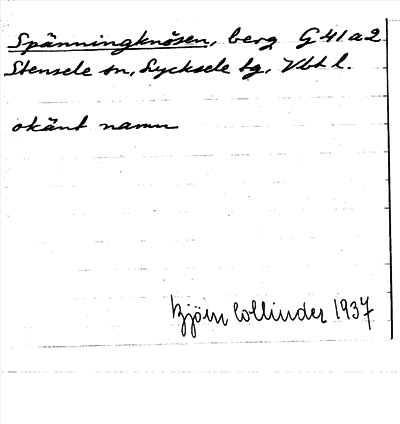 Spänningknösen, berg G41a2
Stensele sn, Lycksele tg, Vbt l.
okänt namn
Björn Collinder 1937